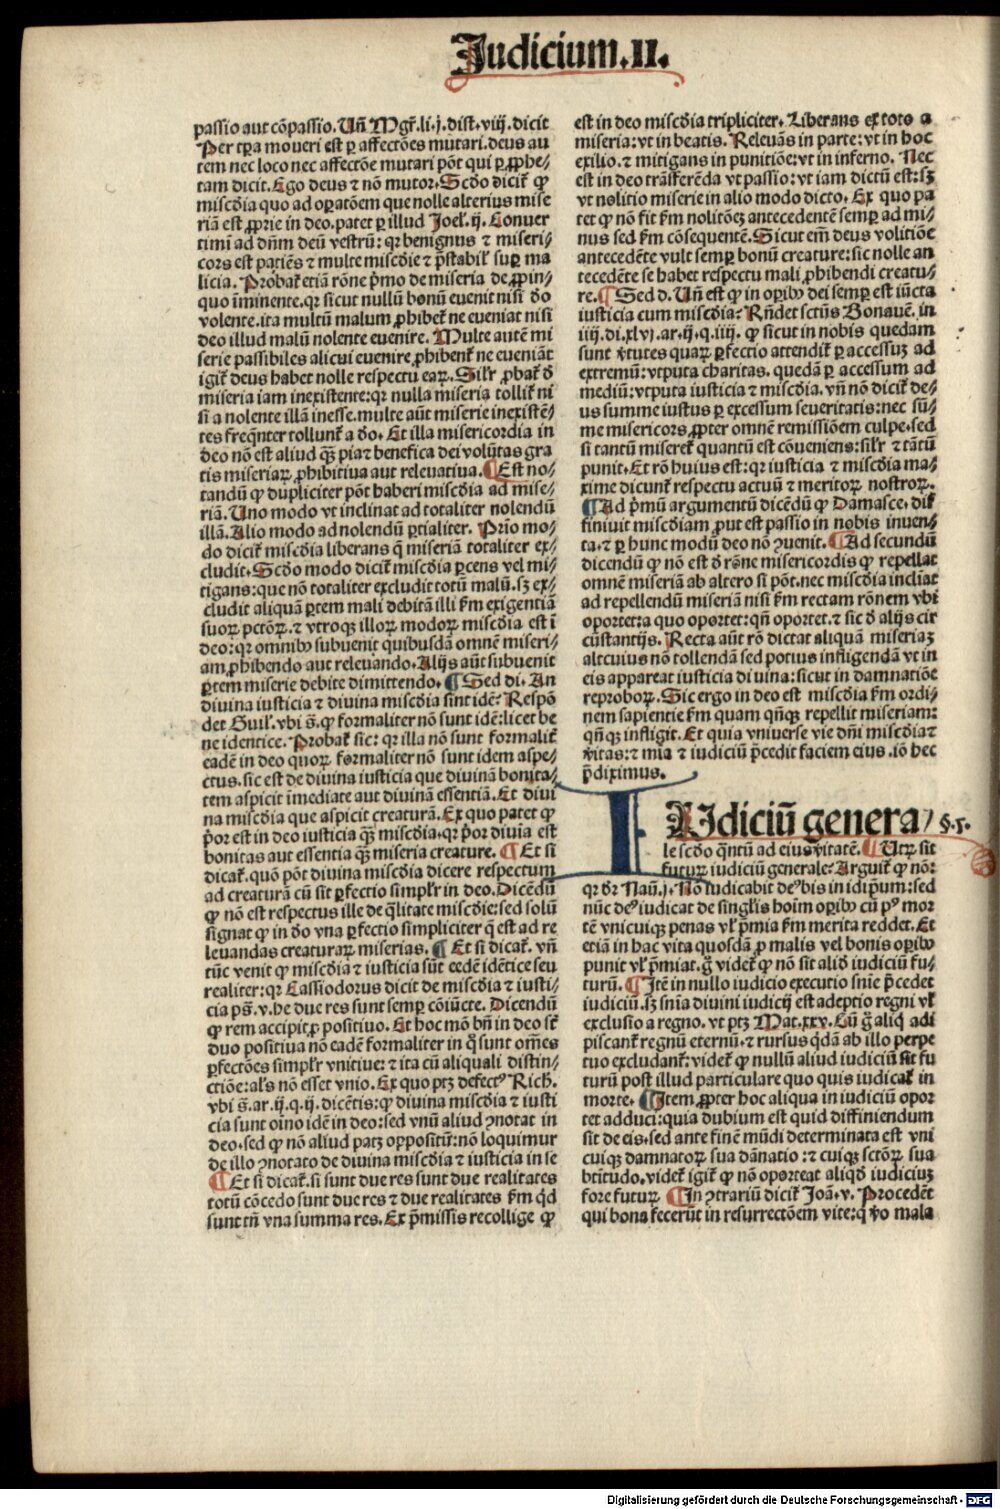 Judicium.II.
passio aut cōpassio. Uñ Mgr̄. li. j. dist. viij. dicit
Per tp̄ra moueri est ꝑ affectōes mutari. deus au
tem nec loco nec affectōe mutari pōt qui ꝑ ꝓphe-
tam dicit. Ego deus ⁊ nō mutor. Scdo dicit̄ ꝙ
misc̄dia quo ad oꝑatōem que nolle alterius mise
riā est ꝓprie in deo. patet ꝑ illud Joel. ij. Conuer
timī ad dn̄m deū vestrū: qꝛ benignus ⁊ miseri-
cors est patiēs ⁊ multe misc̄die ⁊ p̄stabil' suꝑ ma
licia. Probat̄ etiā rōne p̄mo de miseria de ꝓpin-
quo īminente. qꝛ sicut nullū bonū euenit nisi d̄o
volente. ita multū malum ꝓhibet̄ ne eueniat nisi
deo illud malū nolente euenire. Multe autē mi
serie passibiles alicui euenire ꝓhibent̄ ne eueniāt
igit̄ deus habet nolle respectu eaꝝ. Silr̄ ꝓbat̄ d̄
miseria iam inexistente: qꝛ nulla miseria tollit̄ ni
si a nolente illā inesse. multe aūt miserie inexistē-
tes freqn̄ter tollunt̄ a d̄o. Et illa misericordia in
deo nō est aliud qꝫ pia ⁊ benefica dei volūtas gra
tis miseriaꝝ ꝓhibitiua aut releuatiua. ¶ Est no-
tandū ꝙ dupliciter pōt haberi misc̄dia ad mise-
riā. Uno modo vt inclinat ad totaliter nolendū
illā. Alio modo ad nolendū ꝑtialiter. Prīo mo-
do dicit̄ misc̄dia liberans q̄ miseriā totaliter ex-
cludit. Scdo modo dicit̄ misc̄dia ꝑcens vel mi-
tigans: que nō totaliter excludit totū malū. sꝫ ex-
cludit aliquā ꝑtem mali debitā illi fm̄ exigentiā
suoꝝ pctōꝝ. ⁊ vtroqꝫ illoꝝ modoꝝ misc̄dia est ī
deo: qꝛ omnibꝰ subuenit quibusdā omnē miseri-
am ꝓhibendo aut releuando. Alijs aūt subuenit
ꝑtem miserie debite dimittendo. ¶ Sed di. An
diuina iusticia ⁊ diuina misc̄dia sint idē? Respō
det Guil'. vbi s̄. ꝙ formaliter nō sunt idē: licet be
ne identice. Probat̄ sic: qꝛ illa nō sunt formalit̄
eadē in deo quoꝝ formaliter nō sunt idem aspe-
ctus. sic est de diuina iusticia que diuinā bonita-
tem aspicit īmediate aut diuinā essentiā. Et diui
na misc̄dia que aspicit creaturā. Ex quo patet ꝙ
p̄or est in deo iusticia qꝫ misc̄dia. qꝛ p̄or diuīa est
bonitas aut essentia qꝫ miseria creature. ¶ Et si
dicat̄. quō pōt diuina misc̄dia dicere respectum
ad creaturā cū sit ꝑfectio simpl̄r in deo. Dicēdū
ꝙ nō est respectus ille de qͣlitate misc̄die: sed solū
signat ꝙ in d̄o vna ꝑfectio simpliciter q̄ est ad re
leuandas creaturaꝝ miserias. ¶ Et si dicat̄. vn̄
tūc venit ꝙ misc̄dia ⁊ iusticia sūt eedē idētice seu
realiter: qꝛ Cassiodorus dicit de misc̄dia ⁊ iusti-
cia ps̄. v. he due res sunt semꝑ cōiūcte. Dicendū
ꝙ rem accipit ꝓ positiuo. Et hoc mō bn̄ in deo sūt
duo positiua nō eadē formaliter in q̄ sunt om̄es
ꝑfectōes simpl̄r vnitiue: ⁊ ita cū aliquali distin-
ctiōe: als̄ nō esset vnio. Ex quo ptꝫ defectꝰ Rich.
vbi s̄. ar. ij. q. ij. dicētis: ꝙ diuina misc̄dia ⁊ iusti
cia sunt oīno idē in deo: sed vnū aliud ꝯnotat in
deo. sed ꝙ nō aliud patꝫ oppositū: nō loquimur
de illo ꝯnotato de diuina misc̄dia ⁊ iusticia in se
¶ Et si dicat̄. si sunt due res sunt due realitates
totū cōcedo sunt due res ⁊ due realitates fm̄ qd̄
sunt tn̄ vna summa res. Ex p̄missis recollige ꝙ
est in deo misc̄dia tripliciter. Liberans ex toto a
miseria: vt in beatis. Releuās in parte: vt in hoc
exilio. ⁊ mitigans in punitiōe: vt in inferno. Nec
est in deo trāsferēda vt passio: vt iam dictū est: sꝫ
vt nolitio miserie in alio modo dicto. Ex quo pa
tet ꝙ nō fit fm̄ nolitōeꝫ antecedentē semꝑ ad mi-
nus sed fm̄ cōsequentē. Sicut em̄ deus volitiōe
antecedēte vult semꝑ bonū creature: sic nolle an
tecedēte se habet respectu mali ꝓhibendi creatu-
re. ¶ Sed d. Un̄ est ꝙ in oꝑibꝰ dei semꝑ est iūcta
iusticia cum misc̄dia? Rn̄det sctūs Bonauē. in
iiij. di. xlvj. ar. ij. q. iiij. ꝙ sicut in nobis quedam
sunt v̄tutes quaꝝ ꝑfectio attendit̄ ꝑ accessuꝫ ad
extremū: vtputa charitas. quedā ꝑ accessum ad
mediū: vtputa iusticia ⁊ misc̄dia. vn̄ nō dicit̄ de-
us summe iustus ꝑ excessum seueritatis: nec sū-
me misericors ꝓpter omnē remissiōem culpe. sed
si tantū miseret̄ quantū est cōueniens: silr̄ ⁊ tātū
punit. Et rō huius est: qꝛ iusticia ⁊ misc̄dia ma-
xime dicunt̄ respectu actuū ⁊ meritoꝝ nostroꝝ.
¶ Ad p̄mū argumentū dicēdū ꝙ Damasce. dif
finiuit misc̄diam ꝓut est passio in nobis inuen-
ta. ⁊ ꝑ hunc modū deo nō ꝯuenit. ¶ Ad secundū
dicendū ꝙ nō est d̄ rōne misericordis ꝙ repellat
omnē miseriā ab altero si pōt. nec misc̄dia incliat
ad repellendū miseriā nisi fm̄ rectam rōnem vbi
oportet: a quo oportet: qn̄ oportet. ⁊ sic d̄ alijs cir
cūstantijs. Recta aūt rō dictat aliquā miseriaꝫ
alicuius nō tollendā sed potius infligendā vt in
eis appareat iusticia diuina: sicut in damnatiōe
reproboꝝ. Sic ergo in deo est misc̄dia fm̄ ordi-
nem sapientie fm̄ quam qn̄qꝫ repellit miseriam:
qn̄qꝫ infligit. Et quia vniuerse vie dn̄i misc̄dia ⁊
v̄itas: ⁊ mīa ⁊ iudiciū p̄cedit faciem eius. iō hec
p̄diximus.
IUdiciū genera / §. ꝛ.
le scdo qn̄tū ad eius v̄itatē. ¶ Utꝝ sit
futuꝝ iudiciū generale? Arguit̄ ꝙ nō:
qꝛ d̄r Naū. j. Nō iudicabit deꝰ bis in idip̄um: sed
nūc deꝰ iudicat de singl̄is hoīm oꝑibꝰ cū pꝰ mor
tē vnicuiqꝫ penas vl' p̄mia fm̄ merita reddet. Et
etiā in hac vita quosdā ꝓ malis vel bonis oꝑibꝰ
punit vl' p̄miat. g̊ videt̄ ꝙ nō sit aliḋ iudiciū fu-
turū. ¶ Itē in nullo iudicio executio sn̄ie p̄cedet
iudiciū. sꝫ sn̄ia diuini iudicij est adeptio regni vl'
exclusio a regno. vt ptꝫ Mat. xxv. Cū g̊ aliq̄ adi
piscant̄ regnū eternū. ⁊ rursus qd̄ā ab illo perpe
tuo excludant̄: videt̄ ꝙ nullū aliud iudiciū sit fu
turū post illud particulare quo quis iudicat̄ in
morte. ¶ Item ꝓpter hoc aliqua in iudiciū opor
tet adduci: quia dubium est quid diffiniendum
sit de eis. sed ante finē mūdi determinata est vni
cuiqꝫ damnatoꝝ sua dānatio: ⁊ cuiqꝫ sctōꝝ sua
btitudo. videt̄ igit̄ ꝙ nō oporteat aliqd̄ iudiciuꝫ
fore futuꝝ ¶ In ꝯtrariū dicit̄ Joā. v. Procedēt
qui bona fecerūt in resurrectōem vite: q̄ v̄o mala
Digitalisierung gefördert durch die Deutsche Forschungsgemeinschaft - DFG